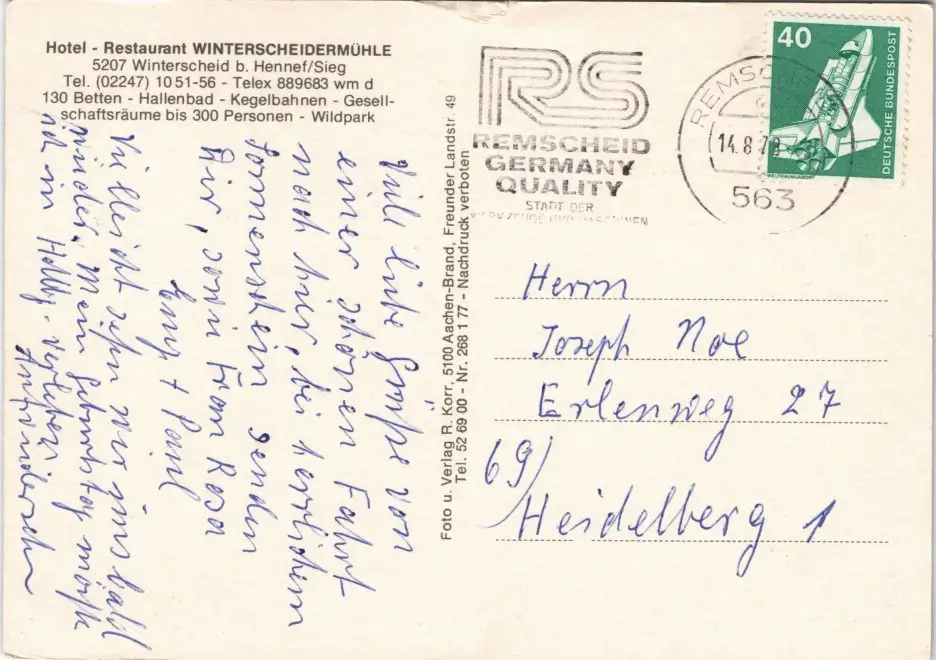 Hotel - Restaurant WINTERSCHEIDERMÜHLE
5207 Winterscheid b. Hennef/Sieg
Tel. (02247) 10 51-56 - Telex 889683 wm d
130 Betten - Hallenbad - Kegelbahnen - Gesell-
schaftsräume bis 300 Personen - Wildpark
Viele liebe Grüße von
einer schönen Fahrt
nach hier, bei herrlichem
Sonnenschein senden
Dir, sowie Frau Rosa
Emy + Paul
Vielleicht sehen wir uns bald
wieder. Mein Geburtstag möchte
ich in verleben
Aufwiedersehn
Foto u. Verlag R. Korr, 5100 Aachen-Brand, Freunder Landstr. 49
Tel. 52 69 00 - Nr. 268 1 77 - Nachdruck verboten
RS
REMSCHEID
GERMANY
QUALITY
STADT DER
WERKZEUGE UND MASCHINEN
REMSCHEID
14.8.
563
40
DEUTSCHE BUNDESPOST
WELTRAUMLABOR
Herrn
Joseph Noe
Erlenweg 27
69/
Heidelberg 1